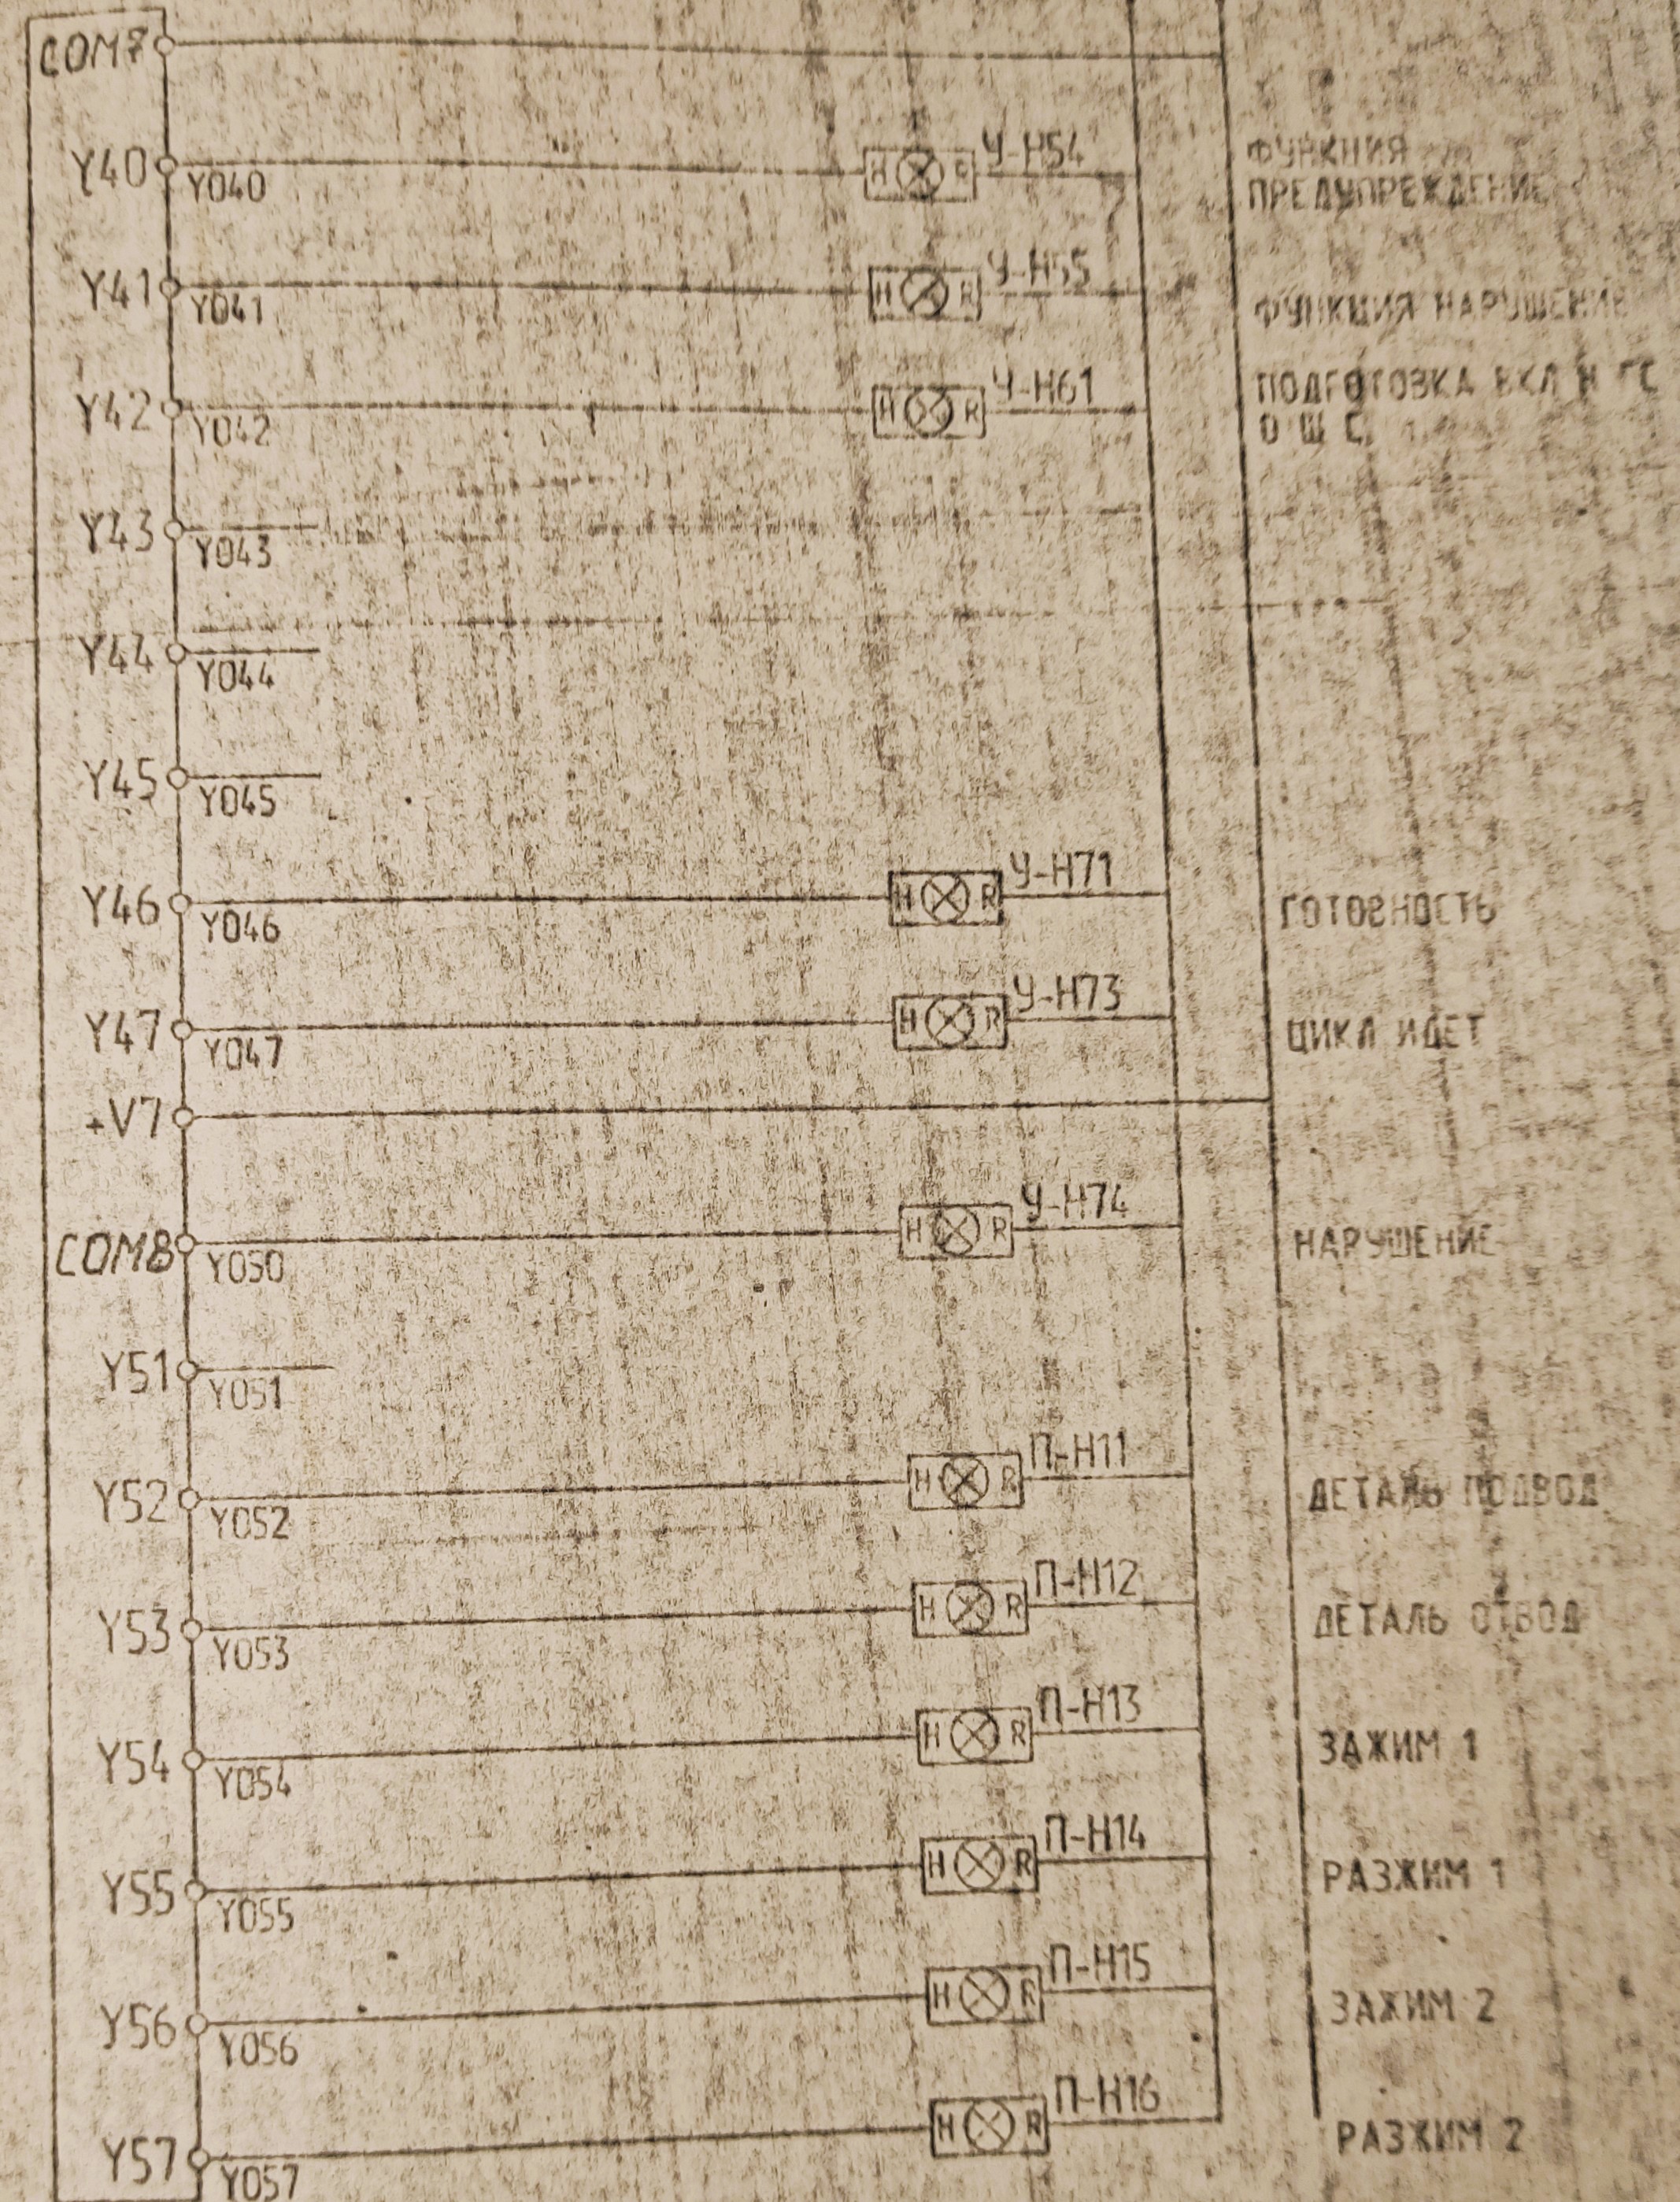 COM7
Y40 Y040 H R У-H54 ФУНКЦИЯ
ПРЕДУПРЕЖДЕНИЕ
Y41 Y041 H R У-H55 ФУНКЦИЯ НАРУШЕНИЕ
Y42 Y042 H R У-H61 ПОДГОТОВКА ВКЛ
О Ш С
Y43 Y043
Y44 Y044
Y45 Y045
Y46 Y046 H R У-H71 ГОТОВНОСТЬ
Y47 Y047 H R У-H73 ЦИКЛ ИДЕТ
+V7
COM8 Y050 H R У-H74 НАРУШЕНИЕ
Y51 Y051
Y52 Y052 H R П-H11 ДЕТАЛЬ ПОДВОД
Y53 Y053 H R П-H12 ДЕТАЛЬ ОТВОД
Y54 Y054 H R П-H13 ЗАЖИМ 1
Y55 Y055 H R П-H14 РАЗЖИМ 1
Y56 Y056 H R П-H15 ЗАЖИМ 2
Y57 Y057 H R П-H16 РАЗЖИМ 2